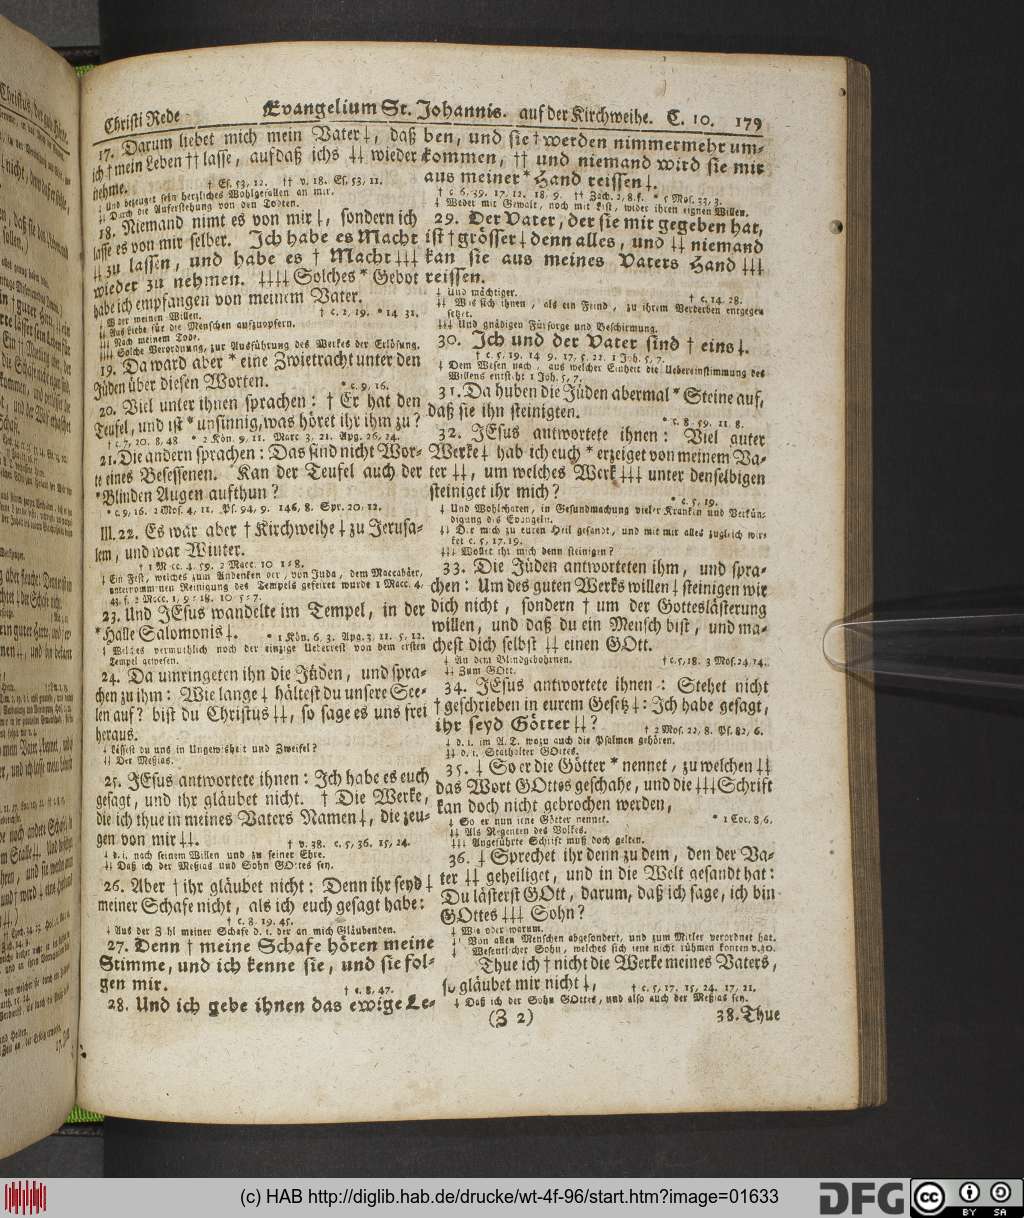 Christi Rede Evangelium St. Johannis. auf der Kirchweihe. C. 10. 179
17. Darum liebet mich mein Vater⸸, daß
ich † mein Leben †† lasse, auf daß ichs ⸸⸸ wieder
nehme. † Es. 53, 12. †† v. 18. Es. 53, 11.
⸸ Und bezeuget sein herzliches Wohlgefallen an mir.
⸸⸸ Durch die Auferstehung von den Todten.
18. Niemand nimt es von mir ⸸, sondern ich
lasse es von mir selber. Ich habe es Macht
⸸⸸ zu lassen, und habe es † Macht ⸸⸸⸸
wieder zu nehmen. ⸸⸸⸸⸸ Solches * Gebot
habe ich empfangen von meinem Vater.
⸸ Wider meinen Willen. † c. 2, 19. * 14, 31.
⸸⸸ Aus Liebe für die Menschen aufzuopfern.
⸸⸸⸸ Nach meinem Tode.
⸸⸸⸸⸸ Solche Verordnung, zur Ausführung des Werkes der Erlösung.
19. Da ward aber * eine Zwietracht unter den
Jüden über diesen Worten. * c. 9, 16.
20. Viel unter ihnen sprachen: † Er hat den
Teufel, und ist * unsinnig, was höret ihr ihm zu?
† c. 7, 20. 8, 48 * 2 Kön. 9, 11. Marc. 3, 21. Apg. 26, 24.
21. Die andern sprachen: Das sind nicht Wor-
te eines Besessenen. Kan der Teufel auch der
* Blinden Augen aufthun?
* c. 9, 16. 2 Mos. 4, 11. Ps. 94, 9. 146, 8. Spr. 20, 12.
III. 22. Es war aber † Kirchweihe ⸸ zu Jerusa-
lem, und war Winter.
† 1 Macc. 4, 59. 2 Macc. 10, 1 = 8.
⸸ Ein Fest, welches zum Andenken der, von Juda, dem Maccabäer,
unternommenen Reinigung des Tempels gefeiret wurde 1 Macc. 4,
43. f. 2 Macc. 1, 9 = 18. 10, 5 = 7.
23. Und JEsus wandelte im Tempel, in der
* Halle Salomonis ⸸. * 1 Kön. 6, 3. Apg. 3, 11. 5, 12.
⸸ Welches vermuthlich noch der einzige Ueberrest von dem ersten
Tempel gewesen.
24. Da umringeten ihn die Jüden, und spra-
chen zu ihm: Wie lange ⸸ hältest du unsere See-
len auf? bist du Christus ⸸⸸, so sage es uns frei
heraus.
⸸ Lässest du uns in Ungewißheit und Zweifel?
⸸⸸ Der Meßias.
25. JEsus antwortete ihnen: Ich habe es euch
gesagt, und ihr gläubet nicht. † Die Werke,
die ich thue in meines Vaters Namen ⸸, die zeu-
gen von mir ⸸⸸. † v. 38. c. 5, 36. 15, 24.
⸸ d. i. nach seinem Willen und zu seiner Ehre.
⸸⸸ Daß ich der Meßias und Sohn GOttes sey.
26. Aber † ihr gläubet nicht: Denn ihr seyd ⸸
meiner Schafe nicht, als ich euch gesagt habe:
† c. 8, 19. 45.
⸸ Aus der Zahl meiner Schafe d. i. der an mich Gläubenden.
27. Denn † meine Schafe hören meine
Stimme, und ich kenne sie, und sie fol-
gen mir. † c. 8, 47.
28. Und ich gebe ihnen das ewige Le-
ben, und sie † werden nimmermehr um-
kommen, †† und niemand wird sie mir
aus meiner * Hand reissen ⸸.
† c. 6, 39. 17, 12. 18, 9. †† Zach. 2, 8. f. * 5 Mos. 33, 3.
⸸ Weder mit Gewalt, noch mit List, wider ihren eignen Willen.
29. Der Vater, der sie mir gegeben hat,
ist † grösser ⸸ denn alles, und ⸸⸸ niemand
kan sie aus meines Vaters Hand ⸸⸸⸸
reissen.
⸸ Und mächtiger. † c. 14, 28.
⸸⸸ Wer sich ihnen, als ein Feind, zu ihrem Verderben entgegen
setzet.
⸸⸸⸸ Und gnädigen Fürsorge und Beschirmung.
30. Ich und der Vater sind † eins ⸸.
† c. 5, 19. 14, 9. 17, 5. 22. 1 Joh. 5, 7.
⸸ Dem Wesen nach, aus welcher Einheit die Uebereinstimmung des
Willens entsteht 1 Joh. 5, 7.
31. Da huben die Jüden abermal * Steine auf,
daß sie ihn steinigten. * c. 8, 59. 11, 8.
32. JEsus antwortete ihnen: Viel guter
Werke ⸸ hab ich euch * erzeiget von meinem Va-
ter ⸸⸸, um welches Werk ⸸⸸⸸ unter denselbigen
steiniget ihr mich? * c. 5, 19.
⸸ Und Wohlthaten, in Gesundmachung vieler Kranken und Verkün-
digung des Evangelii.
⸸⸸ Der mich zu eurem Heil gesandt, und mit mir alles zugleich wir-
ket c. 5, 17. 19.
⸸⸸⸸ Wollet ihr mich denn steinigen?
33. Die Jüden antworteten ihm, und spra-
chen: Um des guten Werks willen ⸸ steinigen wir
dich nicht, sondern † um der Gotteslästerung
willen, und daß du ein Mensch bist, und ma-
chest dich selbst ⸸⸸ einen GOtt.
⸸ An dem Blindgebohrnen. † c. 5, 18. 3 Mos. 24, 14.
⸸⸸ Zum GOtt.
34. JEsus antwortete ihnen: Stehet nicht
† geschrieben in eurem Gesetz ⸸: Ich habe gesagt,
ihr seyd Götter ⸸⸸? † 2 Mos. 22, 8. Ps. 82, 6.
⸸ d. i. im A. T. wozu auch die Psalmen gehören.
⸸⸸ d. i. Stathalter GOttes.
35. ⸸ So er die Götter * nennet, zu welchen ⸸⸸
das Wort GOttes geschahe, und die ⸸⸸⸸ Schrift
kan doch nicht gebrochen werden,
⸸ So er nun jene Götter nennet. * 1 Cor. 8, 6.
⸸⸸ Als Regenten des Volkes.
⸸⸸⸸ Angeführte Schrift muß doch gelten.
36. ⸸ Sprechet ihr denn zu dem, den der Va-
ter ⸸⸸ geheiliget, und in die Welt gesandt hat:
Du lästerst GOtt, darum, daß ich sage, ich bin
GOttes ⸸⸸⸸ Sohn?
⸸ Wie oder warum.
⸸⸸ Von allen Menschen abgesondert, und zum Mitler verordnet hat.
⸸ Wesentlicher Sohn, welches sich jene nicht rühmen konten v. 30.
Thue ich † nicht die Werke meines Vaters,
so gläubet mir nicht ⸸, † c. 5, 17. 15, 24. 17, 21.
⸸ Daß ich der Sohn GOttes, und also auch der Meßias sey.
(Z 2) 38. Thue
(c) HAB http://diglib.hab.de/drucke/wt-4f-96/start.htm?image=01633
DFG
cc BY SA